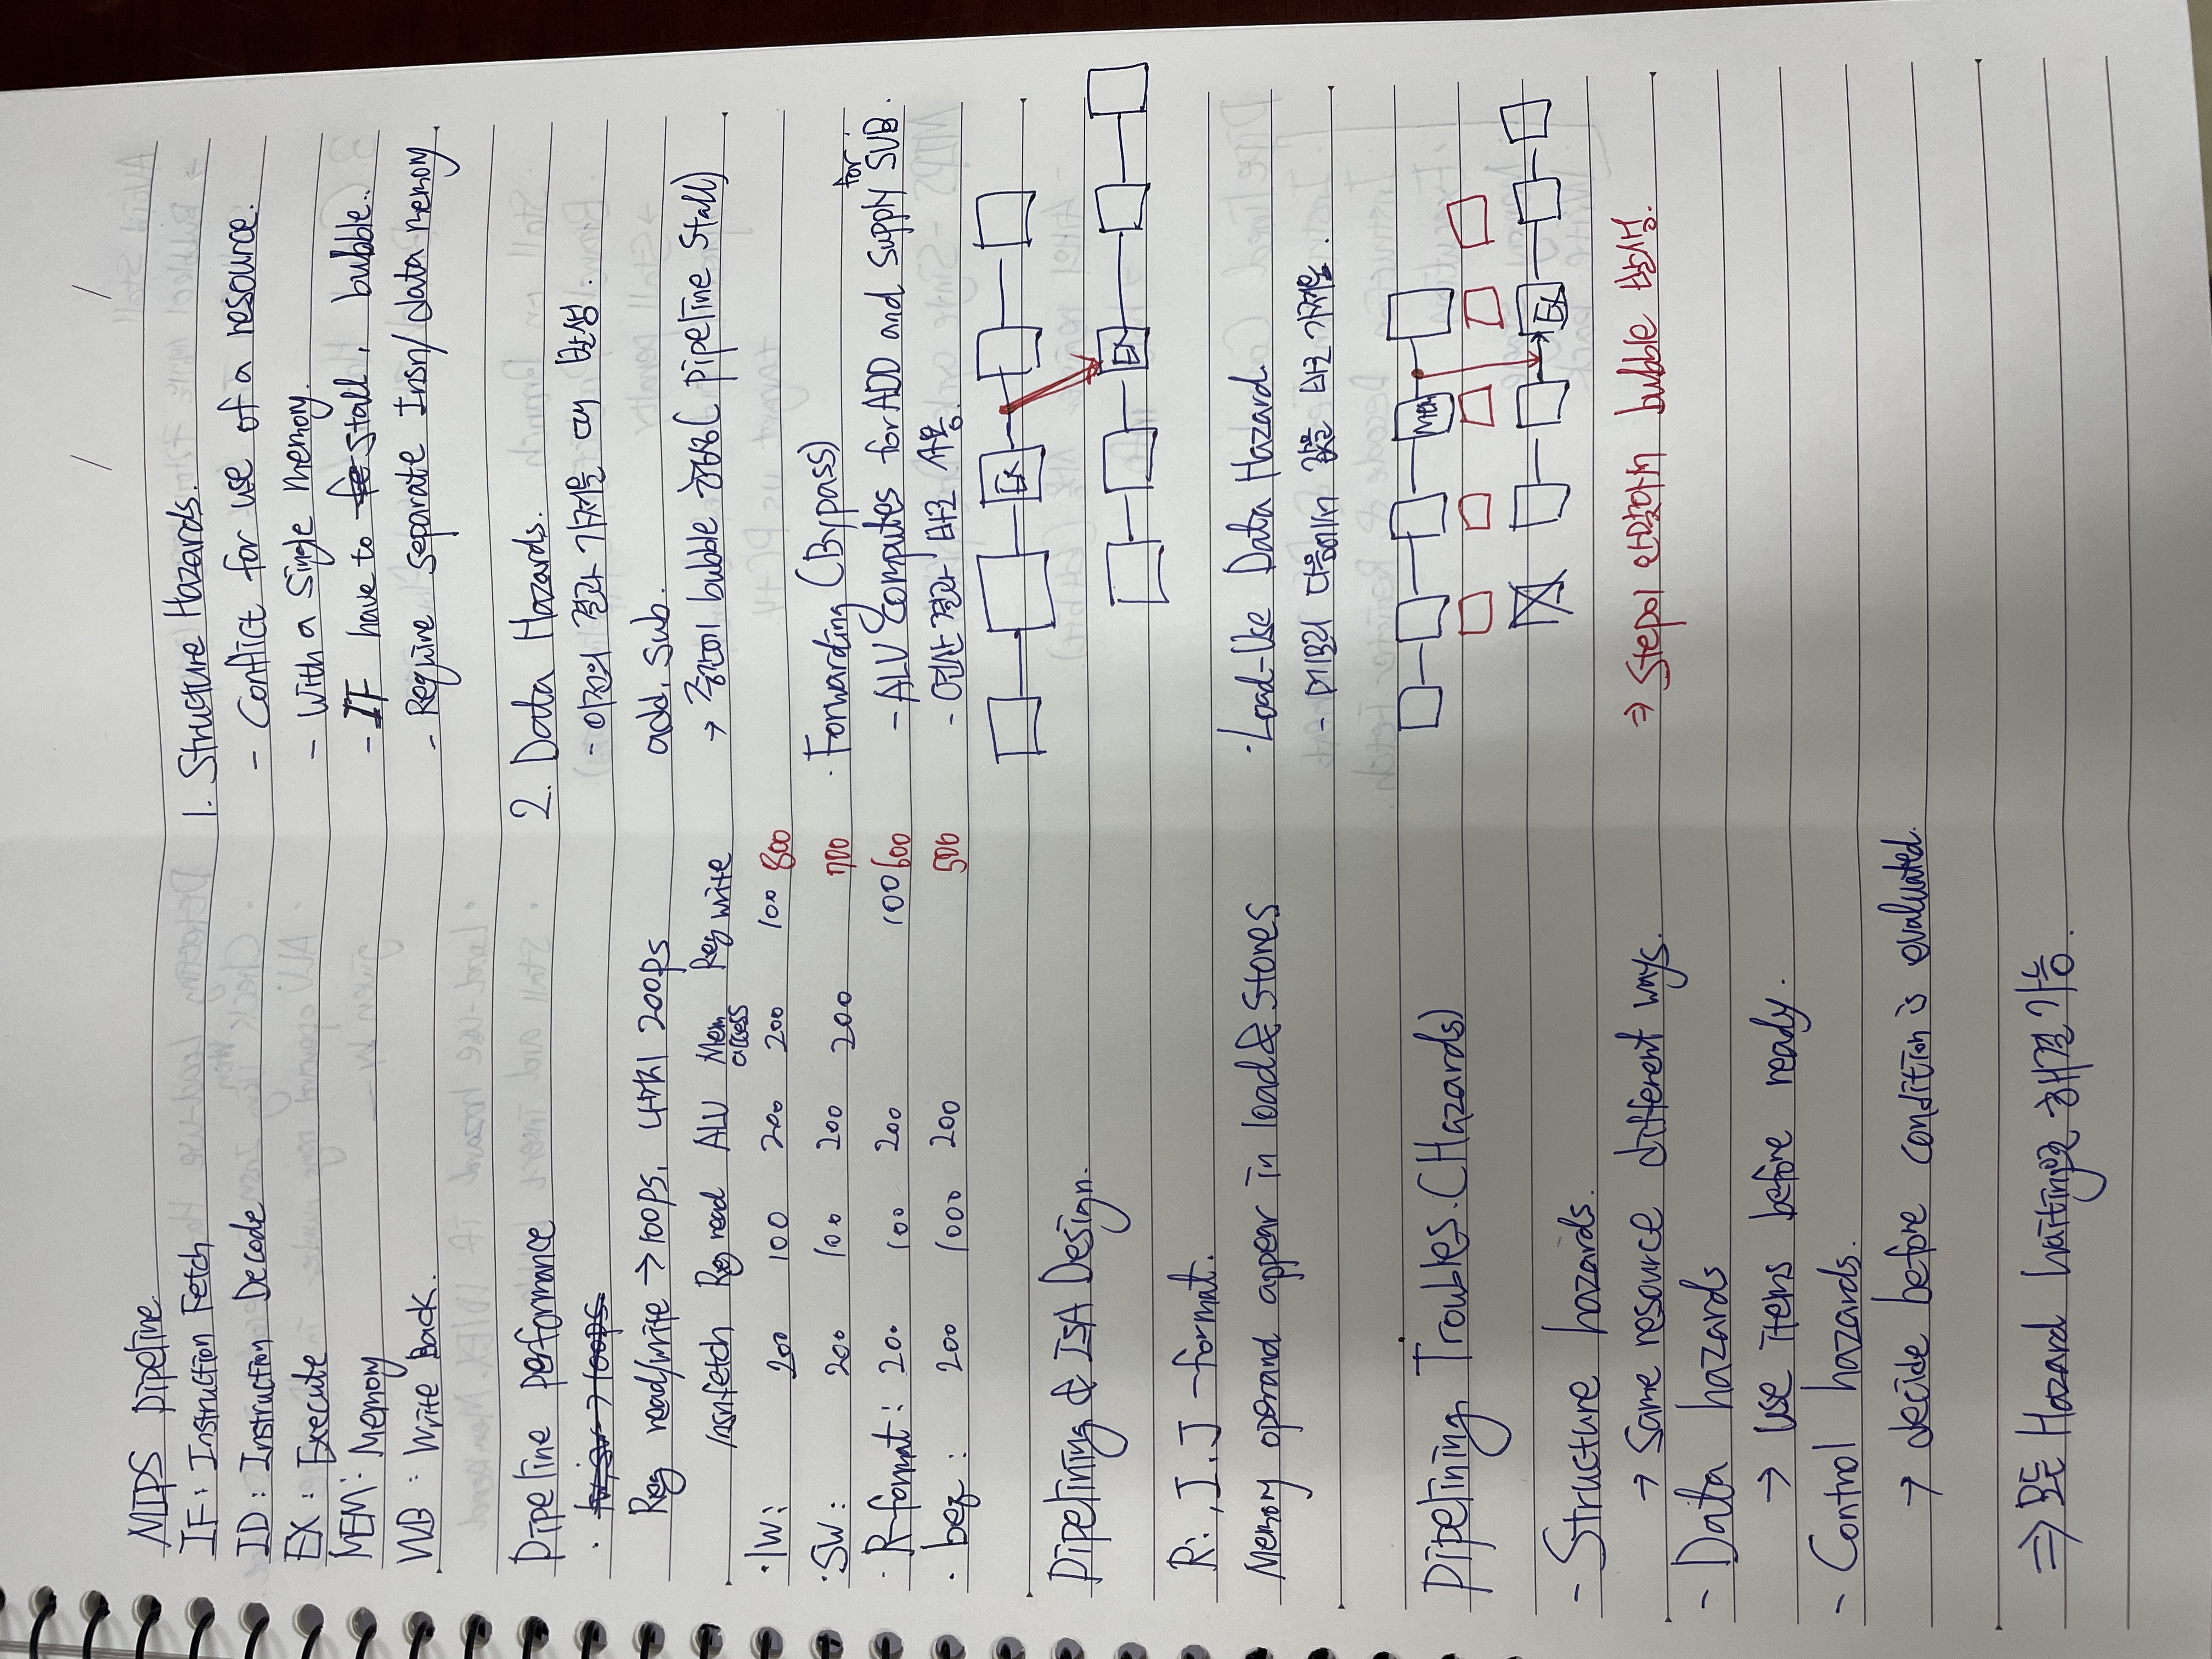 MIPS pipeline
IF: Instruction Fetch
ID: Instruction Decode
EX: Execute
MEM: Memory
WB: Write Back.
Pipeline performance
· lw, sw → 100ps.
Reg read/write → 100ps, 나머지 200ps
Insn fetch Reg read ALU Mem access Reg write
· lw: 200 100 200 200 100 800
· SW: 200 100 200 200 700
· R-format: 200 100 200 100 600
· beq: 200 1000 200 500
Pipelining & ISA Design.
R:, I, J - format.
Memory operand appear in load & Stores
Pipelining Troubles. (Hazards)
- Structure hazards.
→ Same resource different ways.
- Data hazards
→ use items before ready.
- Control hazards.
→ decide before condition is evaluated.
⇒ 모든 Hazard waiting으로 해결 가능.
1. Structure Hazards.
- Conflict for use of a resource.
- With a single memory.
- IF have to fe stall, bubble..
- Require separate Insn/data memory
2. Data Hazards.
- 이전의 결과 가져올 때 발생.
add, sub.
→ 중간에 bubble 형성 (pipeline Stall)
· Forwarding (Bypass)
- ALU Computes for ADD and supply for SUB.
- 연산 결과 바로 사용.
EX
EX
· Load-Use Data Hazard.
- 메모리 다음에서 값을 바로 가져옴.
Mem
EX
⇒ Step이 안맞아서 bubble 발생.